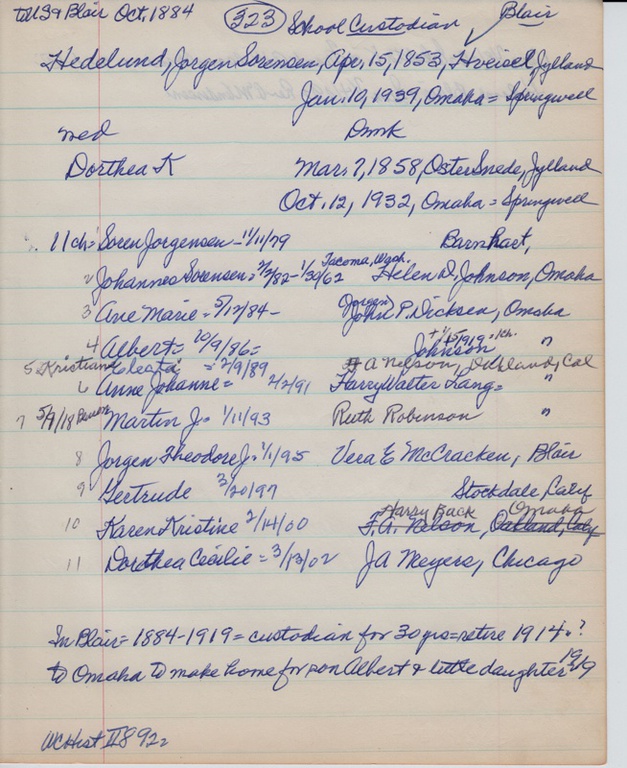 to USA Blair Oct, 1884 323 School Custodian Blair
Hedelund, Jorgen Sorensen, Apr, 15, 1853, Hveisel, Jylland
Jan. 10, 1939, Omaha = Springwell
wed Dmk
Dorthea K Mar. 7, 1858, Oster Snede, Jylland
Oct. 12, 1932, Omaha = Springwell
11 ch = Soren Jorgensen - 11/11/79 Barnhart,
2 Johannes Sorensen = 2/7/82 - 1/30/62 Tacoma, Wash. Helen D. Johnson, Omaha
3 Ane Marie = 5/12/84 - Jorgen John P. Dicksen, Omaha
4 Albert = 10/9/86 = Johnson + 1/15/1919 = 1 ch. "
5 Kristian = 2/9/89 A Nelson, Oakland, Cal
6 Anne Johanne = 2/2/91 Harry Walter Lang = "
7 5/9/18 Martin J. = 1/11/93 Ruth Robinson "
8 Jorgen Theodore J. 1/1/95 Vera E McCracken, Blair
9 Gertrude 3/20/97 Stockdale, Calif
10 Karen Kristine 2/14/00 Harry Back Omaha F. A. Nelson, Oakland, Caly
11 Dorthea Cecilie = 3/13/02 J A Meyers, Chicago
In Blair = 1884-1919 = custodian for 30 yrs = retire 1914. ?
to Omaha to make home for son Albert & little daughter 1919
WC Hist II 892